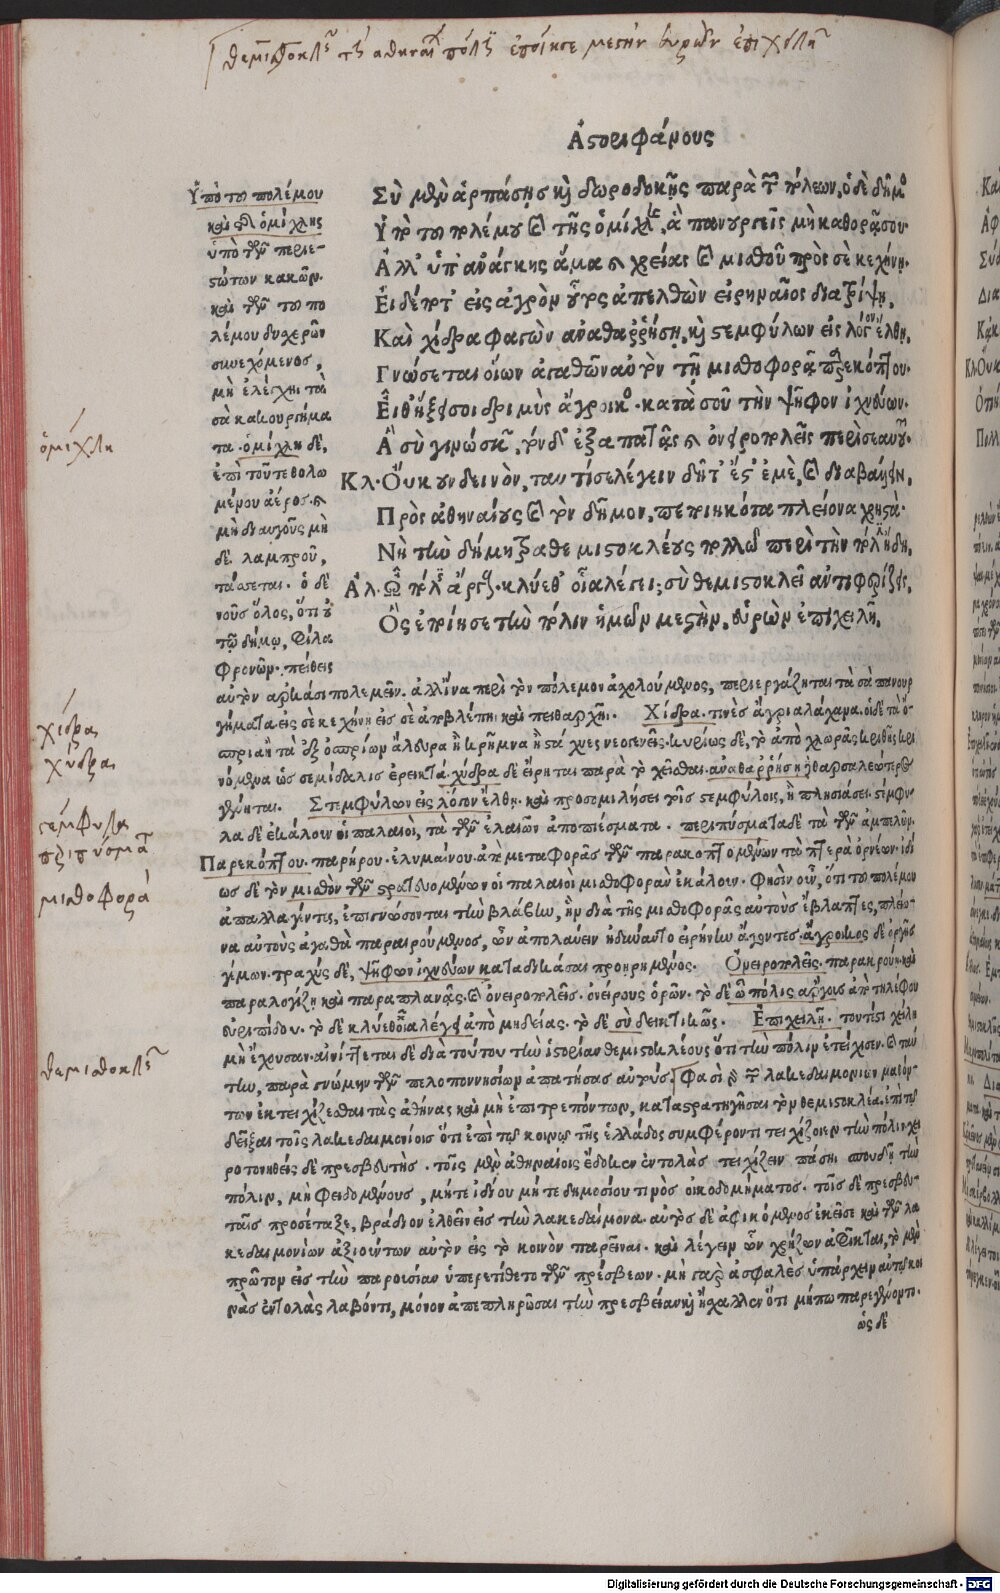 θεμιστοκλῆς τῆς ἀθηναίων πόλεως ἐποίησε μεστὴν εὑρὼν ἐπιχειλῆ
Ἀριστοφάνους
Σὺ μὲν ἁρπάζῃς καὶ δωροδοκῇς παρὰ τῶν πόλεων, ὁ δὲ δῆμος
Ὑπὸ τοῦ πολέμου καὶ τῆς ὁμίχλης, ἃ πανουργεῖς μὴ καθορᾷ σου
Ἀλλ' ὑπ' ἀνάγκης ἅμα καὶ χρείας καὶ μισθοῦ πρός σε κεχήνῃ.
Εἰ δέ ποτ' εἰς ἀγρὸν οὗτος ἀπελθὼν εἰρηναῖος διατρίψῃ,
Καὶ χίδρα φαγὼν ἀναθαρρήσῃ, καὶ στεμφύλων εἰς λόγον ἔλθῃ,
Γνώσεται οἵων ἀγαθῶν αὐτὸν τῇ μισθοφορᾷ παρεκόπτου.
Εἶθ' ἥξει σοι δριμὺς ἄγροικος. κατὰ σοῦ τὴν ψῆφον ἰχνεύων.
Ἃ σὺ γινώσκων, τόνδ' ἐξαπατᾷς καὶ ὀνειροπολεῖς περὶ σεαυτοῦ.
Κλ. Οὔκουν δεινὸν, ταυτί σε λέγειν δῆτ' ἔστ' ἐμὲ, καὶ διαβάλλειν,
Πρὸς ἀθηναίους καὶ τὸν δῆμον, πεποιηκότα πλείονα χρηστὰ.
Νὴ τὴν δήμητρα θεμιστοκλέους πολλῷ περὶ τὴν πόλιν ἤδη,
Ἀλ. Ὦ πόλις ἄργους. κλύεθ' οἷα λέγει; σὺ θεμιστοκλεῖ ἀντιφερίζεις,
Ὃς ἐποίησε τὴν πόλιν ἡμῶν μεστὴν, εὑρὼν ἐπιχειλῆ,
Ὑπὸ του πολέμου
καὶ τῆς ὁμίχλης
ὑπὸ τῶν περιε-
στώτων κακῶν.
καὶ τῶν του πο
λέμου δυσχερῶν
συνεχόμενος,
μὴ ἐλέγχῃ τὰ
σὰ κακουργήμα
τα. ὁμίχλη δὲ,
ἐπὶ τοῦ τεθολω
μένου ἀέρος. καὶ
μὴ διαυγοῦς μὴ
δὲ λαμπροῦ,
τάσσεται. ὁ δὲ
νοῦς ὅλος, ὅτι οὐ
τῷ δήμῳ, φίλα
φρονῶν. πείθεις
αὐτὸν ἀρκάσι πολεμεῖν. ἀλλ' ἵνα περὶ τὸν πόλεμον ἀσχολούμενος, περιεργάζηται τὰ σὰ πανουρ
γήματα εἰς σὲ κεχήνῃ εἰς σὲ ἀποβλέπῃ καὶ πειθαρχῇ. Χίδρα. τινὲς ἄγρια λάχανα. οἱ δὲ τὰ ὄ-
σπρια ἢ τὰ ἐξ ὀσπρίων ἄλευρα ἢ κρῆμνα ἢ στάχυες νεογενεῖς. κυρίως δὲ, τὸ ἀπὸ χλωρᾶς κριθῆς κρι
νόμενα ὡς σεμίδαλις ἐρεικτά. χύδρα δὲ εἴρηται παρὰ τὸ χεῖσθαι. ἀναθαρρήσῃ ἢ θαρσαλεώτερος
γένηται. Στεμφύλων εἰς λόγον ἔλθῃ. καὶ προσομιλήσει τοῖς στεμφύλοις, ἢ πλησιάσει. στέμφυ-
λα δὲ ἐκάλουν οἱ παλαιοὶ, τὰ τῶν ἐλαιῶν ἀποπιέσματα. περιπύσματα δὲ τὰ τῶν ἀμπέλων.
Παρεκόπτου. παρῄρου. ἐλυμαίνου. ἀπὸ μεταφορᾶς τῶν παρακοπτομένων τὰ πτερὰ ὀρνέων. ἰδί
ως δὲ τὸν μισθὸν τῶν στρατευομένων οἱ παλαιοὶ μισθοφορὰν ἐκάλουν. φησὶν οὖν, ὅτι του πολέμου
ἀπαλλαγέντες, ἐπιγνώσονται τὴν βλάβην, ἣν διὰ τῆς μισθοφορᾶς αὐτοὺς ἔβλαπτες, πλείο-
να αὐτοὺς ἀγαθὰ παραιρούμενος, ὧν ἀπολαύειν ἠδύναντο εἰρήνην ἄγοντες. ἄγροικος δὲ ὀργῆς
γέμων. τραχύς δὲ, ψῆφον ἰχνεύων καταδικάσαι προῃρημένος. Ὀνειροπολεῖς. παρακρούῃ καὶ
παραλογίζῃ καὶ παραπλανᾷς. καὶ ὀνειροπολεῖς. ὀνείρους ὁρῶν. τὸ δὲ ὦ πόλις ἄργους ἀπὸ τηλέφου
εὐριπίδου. τὸ δὲ κλύεθ' οἷα λέγει ἀπὸ μηδείας. τὸ δὲ σὺ δεικτικῶς. Ἐπιχειλῆ. τουτέστι χείλη
μὴ ἔχουσαν. αἰνίττεται δὲ διὰ τούτου τὴν ἱστορίαν θεμιστοκλέους ὅτι τὴν πόλιν ἐτείχισεν. καὶ ταύ
την, παρὰ γνώμην τῶν πελοποννησίων ἀπατήσας αὐτούς. Φασὶ γὰρ τῶν λακεδαιμονίων μαθόν-
των ἐκτειχίζεσθαι τὰς ἀθήνας καὶ μὴ ἐπιτρεπόντων, καταστρατηγῆσαι τὸν θεμιστοκλέα. ἐπὶ τῷ
δεῖξαι τοῖς λακεδαιμονίοις ὅτι ἐπὶ τῷ κοινῷ τῆς ἑλλάδος συμφέροντι τειχίζοιεν τὴν πόλιν. χει
ροτονηθεὶς δὲ πρεσβευτὴς. τοῖς μὲν ἀθηναίοις ἔδωκεν ἐντολὰς τειχίζειν πάσῃ σπουδῇ τὴν
πόλιν, μὴ φειδομένους, μήτε ἰδίου μήτε δημοσίου τινὸς οἰκοδομήματος. τοῖς δὲ πρεσβευ-
ταῖς προσέταξε, βράδιον ἐλθεῖν εἰς τὴν λακεδαίμονα. αὐτὸς δὲ ἀφικόμενος ἐκεῖσε καὶ τῶν λα
κεδαιμονίων ἀξιούντων αὐτὸν εἰς τὸ κοινὸν παρεῖναι. καὶ λέγειν ὧν χρῄζων ἀφῖκται, τὸ μὲν
πρῶτον εἰς τὴν παρουσίαν ὑπερετίθετο τῶν πρέσβεων. μὴ γὰρ ἀσφαλὲς ὑπάρχειν αὐτῷ κοι
νὰς ἐντολὰς λαβόντι, μόνον ἀποπληρῶσαι τὴν πρεσβείαν καὶ ἤσχαλλεν ὅτι μήπω παρεγένοντο.
ὡς δὲ
ὁμίχλη
χίδρα
χύδραι
στέμφυλα
περιπύσματα
μισθοφορὰ
θεμιστοκλῆς
Digitalisierung gefördert durch die Deutsche Forschungsgemeinschaft - DFG